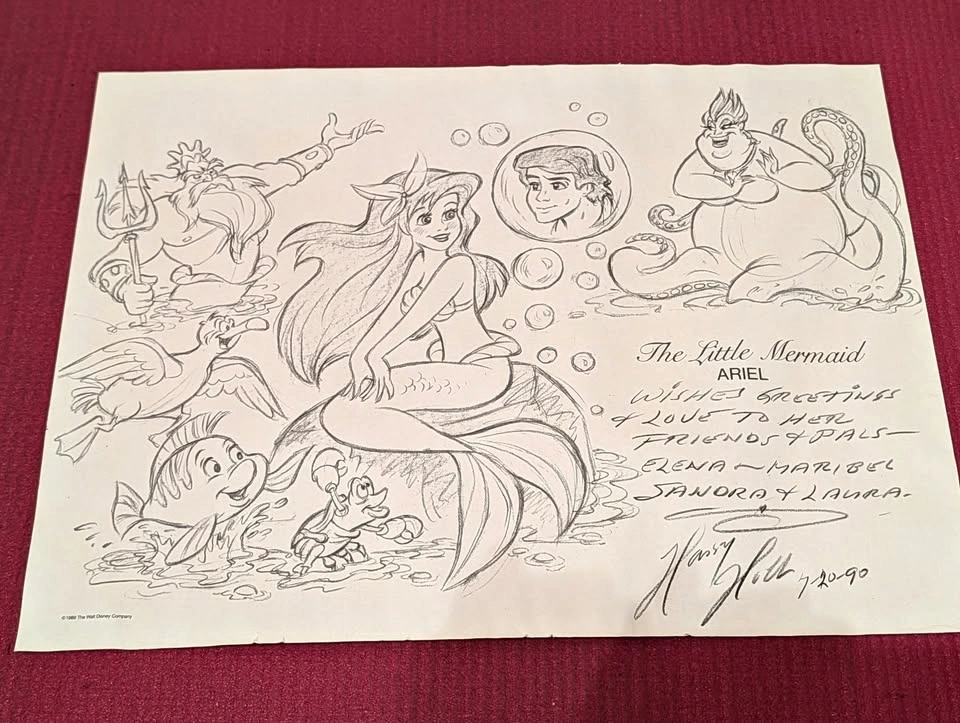 The Little Mermaid
ARIEL
WISHES GREETINGS
& LOVE TO HER
FRIENDS & PALS—
ELENA — MARIBEL
SANDRA & LAURA.
7-20-90
©1989 The Walt Disney Company